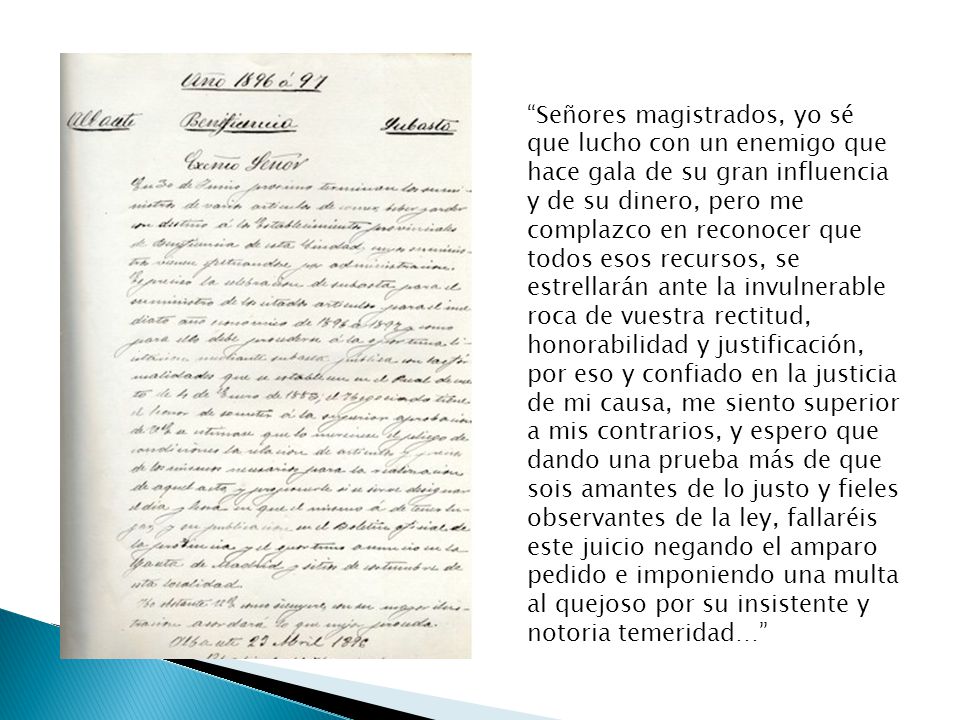 Año 1896 á 97
Albacete Beneficencia Subasta
Excmo Señor
En 30 de Junio proximo terminan los sumi-
nistros de varios articulos de comer beber y arder
con destino á los Establecimientos provinciales
de Beneficencia de esta Ciudad, cuyos suminis-
tros vienen efectuandose por administracion.
Es preciso la celebracion de subasta para el
suministro de los citados articulos para el inme
diato año económico de 1896 á 1897 y como
para ello debe procederse á la oportuna li-
citacion mediante subasta pública con las for
malidades que se establecen en el Real decre
to de 4 de Enero de 1883, el Negociado tiene
el honor de someter á la superior aprobacion
de V.E. el pliego de
condiciones la relacion de articulos y precios
de los mismos necesarios para la realizacion
de aquel acto y proponerle si se sirve designar
el dia y hora en que el mismo á de tener lu-
gar y su publicacion en el Boletin oficial de
la provincia y el oportuno anuncio en la
Gaceta de Madrid y sitios de costumbre de
esta localidad.
No obstante V.E. como siempre, con su mayor ilus-
tracion acordará lo que mejor proceda.
Albacete 23 Abril 1896
“Señores magistrados, yo sé
que lucho con un enemigo que
hace gala de su gran influencia
y de su dinero, pero me
complazco en reconocer que
todos esos recursos, se
estrellarán ante la invulnerable
roca de vuestra rectitud,
honorabilidad y justificación,
por eso y confiado en la justicia
de mi causa, me siento superior
a mis contrarios, y espero que
dando una prueba más de que
sois amantes de lo justo y fieles
observantes de la ley, fallaréis
este juicio negando el amparo
pedido e imponiendo una multa
al quejoso por su insistente y
notoria temeridad…”